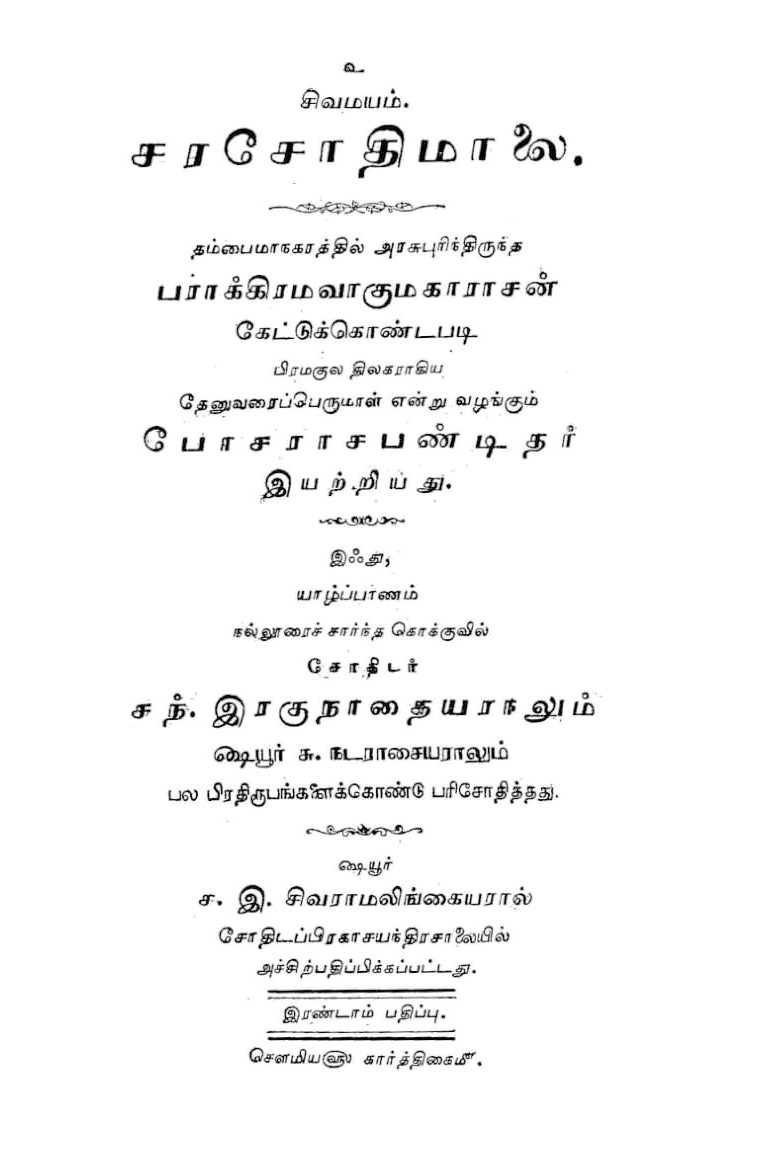 உ
சிவமயம்.
சரசோதிமாலை.
தம்பைமாநகரத்தில் அரசுபுரிந்திருந்த
பராக்கிரமவாகுமகாராசன்
கேட்டுக்கொண்டபடி
பிரமகுல திலகராகிய
தேனுவரைப்பெருமாள் என்று வழங்கும்
போசராசபண்டிதர்
இயற்றியது.
இஃது,
யாழ்ப்பாணம்
நல்லூரைச் சார்ந்த கொக்குவில்
சோதிடர்
ச ந். இரகுநாதையராலும்
ஷையூர் சு. நடராசையராலும்
பல பிரதிரூபங்களைக்கொண்டு பரிசோதித்தது.
ஷையூர்
ச. இ. சிவராமலிங்கையரால்
சோதிடப்பிரகாசயந்திரசாலையில்
அச்சிற்பதிப்பிக்கப்பட்டது.
இரண்டாம் பதிப்பு.
சௌமிய௵ கார்த்திகை௴.